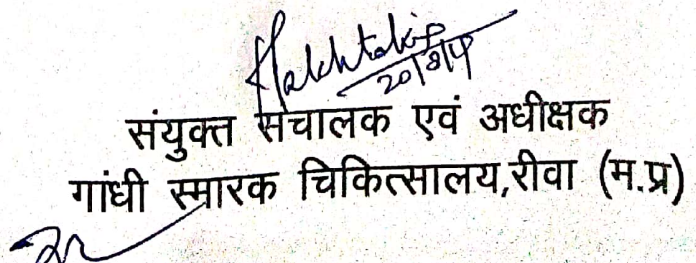 20/8/14
संयुक्त संचालक एवं अधीक्षक
गांधी स्मारक चिकित्सालय,रीवा (म.प्र)